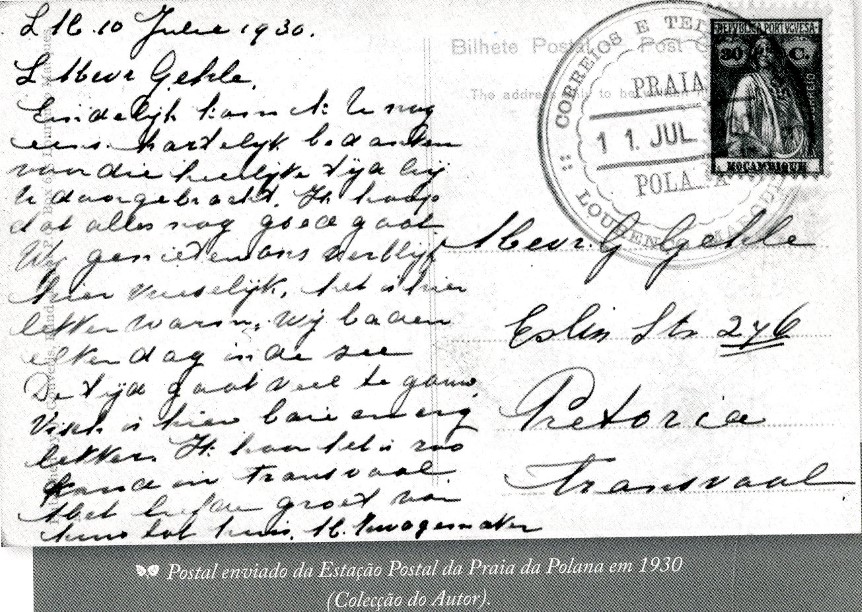 L M. 10 Julie 1930.
L Mevr Gehle.
Eindelijk kom ik U nog
eens hartelijk bedanken
voor die heerlijke tijd bij
U doorgebracht. Ik hoop
dat alles nog goed gaat
Wij genieten ons verblijf
hier vreselijk, het is hier
lekker warm, wij baden
elken dag in de zee
De tijd gaat veel te gauw
Visch is hier baie en erg
lekker. Ik hoor het is zoo
koud in Transvaal
Met liefde groet van
huis tot huis. M.
Bilhete Postal Post
The address only to be
CORREIOS E TEL
PRAIA
11. JUL
POLANA
LOURENÇO MARQUES
REPUBLICA PORTUGUESA
30 C.
CORREIO
MOÇAMBIQUE
Mevr. G Gehle
Eslin Str 276
Pretoria
Transvaal
Postal enviado da Estação Postal da Praia da Polana em 1930
(Colecção do Autor).